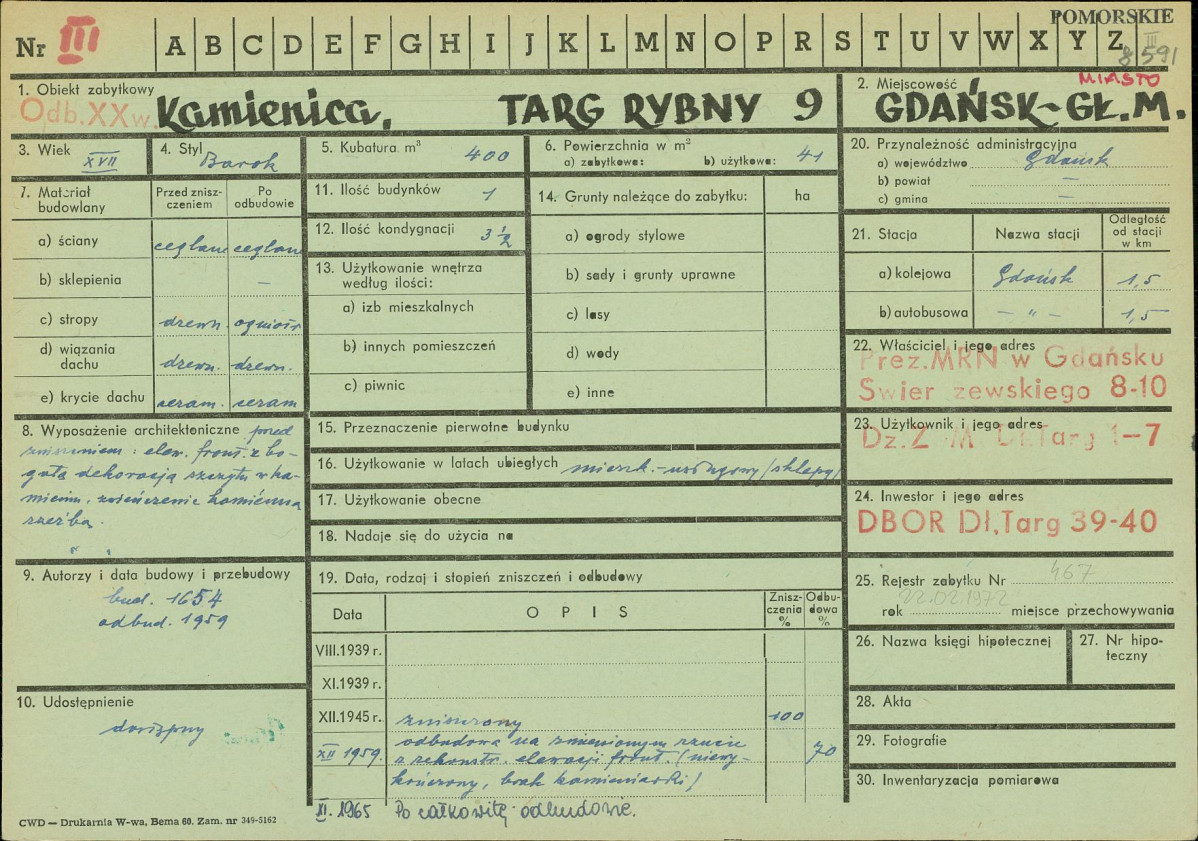 POMORSKIE
Nr III A B C D E F G H I J K L M N O P R S T U V W X Y Z
III
8591
1. Obiekt zabytkowy
Odb. XX w. Kamienica, TARG RYBNY 9
2. Miejscowość MIASTO
GDAŃSK-GŁ.M.
3. Wiek XVII
4. Styl Barok
5. Kubatura m³ 400
6. Powierzchnia w m²
a) zabytkowa: b) użytkowa: 41
7. Materiał budowlany
Przed zniszczeniem
Po odbudowie
a) ściany ceglane ceglane
b) sklepienia —
c) stropy drewn. ogniotr
d) wiązania dachu drewn. drewn.
e) krycie dachu ceram. ceram
8. Wyposażenie architektoniczne przed
zniszczeniem: elew. front. z bo-
gatą dekoracją szczytu w ka-
mieniu, zwieńczenie kamienna
rzeźba.
9. Autorzy i data budowy i przebudowy
bud. 1654
odbud. 1959
10. Udostępnienie
dostępny
11. Ilość budynków 1
12. Ilość kondygnacji 3 ½
13. Użytkowanie wnętrza
według ilości:
a) izb mieszkalnych
b) innych pomieszczeń
c) piwnic
14. Grunty należące do zabytku: ha
a) ogrody stylowe
b) sady i grunty uprawne
c) lasy
d) wody
e) inne
15. Przeznaczenie pierwotne budynku
16. Użytkowanie w latach ubiegłych mieszk.-usługowy (sklepy)
17. Użytkowanie obecne
18. Nadaje się do użycia na
19. Data, rodzaj i stopień zniszczeń i odbudowy
Data OPIS Zniszczenia % Odbudowa %
VIII.1939 r.
XI.1939 r.
XII.1945 r. zniszczony 100
XII 1959. odbudowa na zmienionym rzucie
z rekonstr. elewacji front. (niewy-
kończony, brak kamieniarki) 70
XI. 1965 Po całkowitej odbudowie.
20. Przynależność administracyjna
a) województwo Gdańsk
b) powiat —
c) gmina —
21. Stacja Nazwa stacji Odległość od stacji w km
a) kolejowa Gdańsk 1,5
b) autobusowa — " — 1,5
22. Właściciel i jego adres
Prez.MRN w Gdańsku
Swier zewskiego 8-10
23. Użytkownik i jego adres
Dz.Z M Dł.Targ 1-7
24. Inwestor i jego adres
DBOR Dł.Targ 39-40
25. Rejestr zabytku Nr 467
rok 22.02.1972 miejsce przechowywania
26. Nazwa księgi hipotecznej
27. Nr hipoteczny
28. Akta
29. Fotografie
30. Inwentaryzacja pomiarowa
CWD — Drukarnia W-wa, Bema 60. Zam. nr 349-5162